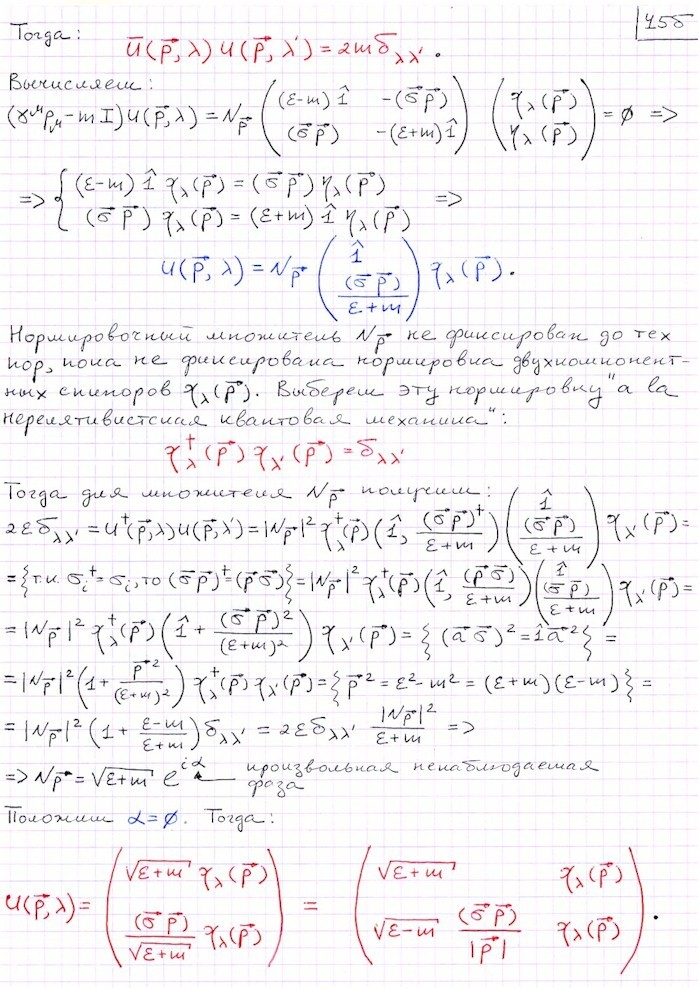 456
Тогда:
ū(p⃗, λ) u(p⃗, λ') = 2m δ_λλ' .
Вычисляем:
(γ^μ p_μ − m I) u(p⃗, λ) = N_p⃗ ( (ε−m) 1̂   −(σ⃗ p⃗) ; (σ⃗ p⃗)   −(ε+m) 1̂ ) ( φ_λ(p⃗) ; η_λ(p⃗) ) = ∅ =>
=> { (ε−m) 1̂ φ_λ(p⃗) = (σ⃗ p⃗) η_λ(p⃗)
(σ⃗ p⃗) φ_λ(p⃗) = (ε+m) 1̂ η_λ(p⃗) =>
u(p⃗, λ) = N_p⃗ ( 1̂ ; (σ⃗ p⃗)/(ε+m) ) φ_λ(p⃗).
Нормировочный множитель N_p⃗ не фиксирован до тех
пор, пока не фиксирована нормировка двухкомпонент-
ных спиноров φ_λ(p⃗). Выберем эту нормировку "а la
нерелятивистская квантовая механика":
φ_λ^†(p⃗) φ_λ'(p⃗) = δ_λλ'
Тогда для множителя N_p⃗ получим:
2ε δ_λλ' = u^†(p⃗, λ) u(p⃗, λ') = |N_p⃗|² φ_λ^†(p⃗) ( 1̂, (σ⃗ p⃗)^†/(ε+m) ) ( 1̂ ; (σ⃗ p⃗)/(ε+m) ) φ_λ'(p⃗) =
= { т.к. σ_i^† = σ_i, то (σ⃗ p⃗)^† = (p⃗ σ⃗) } = |N_p⃗|² φ_λ^†(p⃗) ( 1̂, (p⃗ σ⃗)/(ε+m) ) ( 1̂ ; (σ⃗ p⃗)/(ε+m) ) φ_λ'(p⃗) =
= |N_p⃗|² φ_λ^†(p⃗) ( 1̂ + (σ⃗ p⃗)²/(ε+m)² ) φ_λ'(p⃗) = { (a⃗ σ⃗)² = 1̂ a⃗² } =
= |N_p⃗|² ( 1 + p⃗²/(ε+m)² ) φ_λ^†(p⃗) φ_λ'(p⃗) = { p⃗² = ε² − m² = (ε+m)(ε−m) } =
= |N_p⃗|² ( 1 + (ε−m)/(ε+m) ) δ_λλ' = 2ε δ_λλ' |N_p⃗|²/(ε+m) =>
=> N_p⃗ = √(ε+m) e^{iα} ← произвольная ненаблюдаемая
фаза
Положим α = ∅. Тогда:
u(p⃗, λ) = ( √(ε+m) φ_λ(p⃗) ; (σ⃗ p⃗)/√(ε+m) φ_λ(p⃗) ) = ( √(ε+m) φ_λ(p⃗) ; √(ε−m) (σ⃗ p⃗)/|p⃗| φ_λ(p⃗) ) .